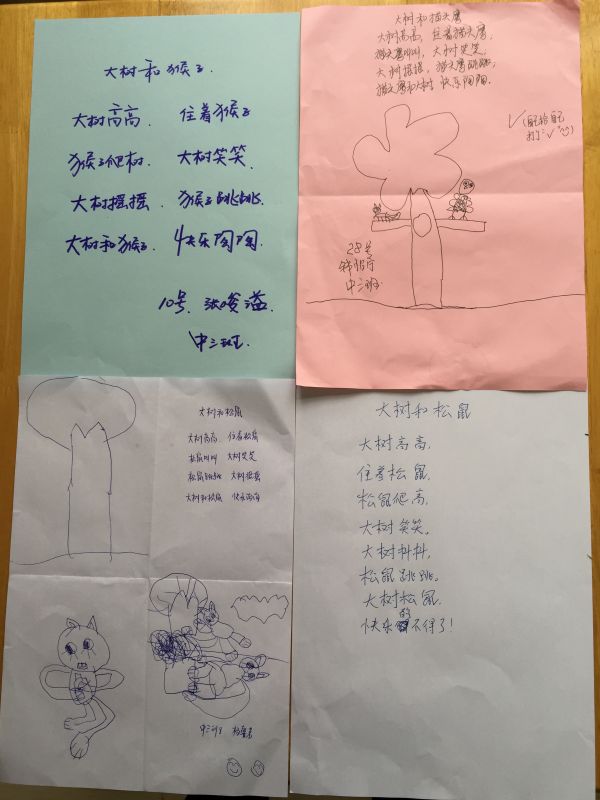 大树和猴子
大树高高. 住着猴子
猴子爬树. 大树笑笑.
大树摇摇. 猴子跳跳.
大树和猴子. 快乐陶陶.
10号. 张峻溢.
中三班.
大树和猫头鹰
大树高高, 住着猫头鹰,
猫头鹰叫叫, 大树笑笑,
大树摇摇, 猫头鹰跳跳,
猫头鹰和大树 快乐陶陶.
(自己给自己
打:√
28号
中三班
大树和松鼠
大树高高 住着松鼠
松鼠叫叫 大树笑笑
松鼠跳跳 大树摇摇
大树和松鼠 快乐陶陶
中三班
大树和松鼠
大树高高.
住着松鼠.
松鼠爬高.
大树笑笑.
大树抖抖.
松鼠跳跳.
大树松鼠.
快乐的不得了!